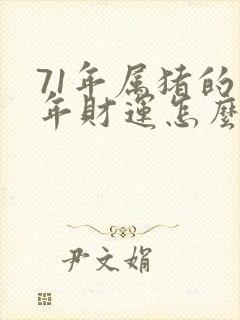 71年属猪的
年财运怎麽
尹文娟